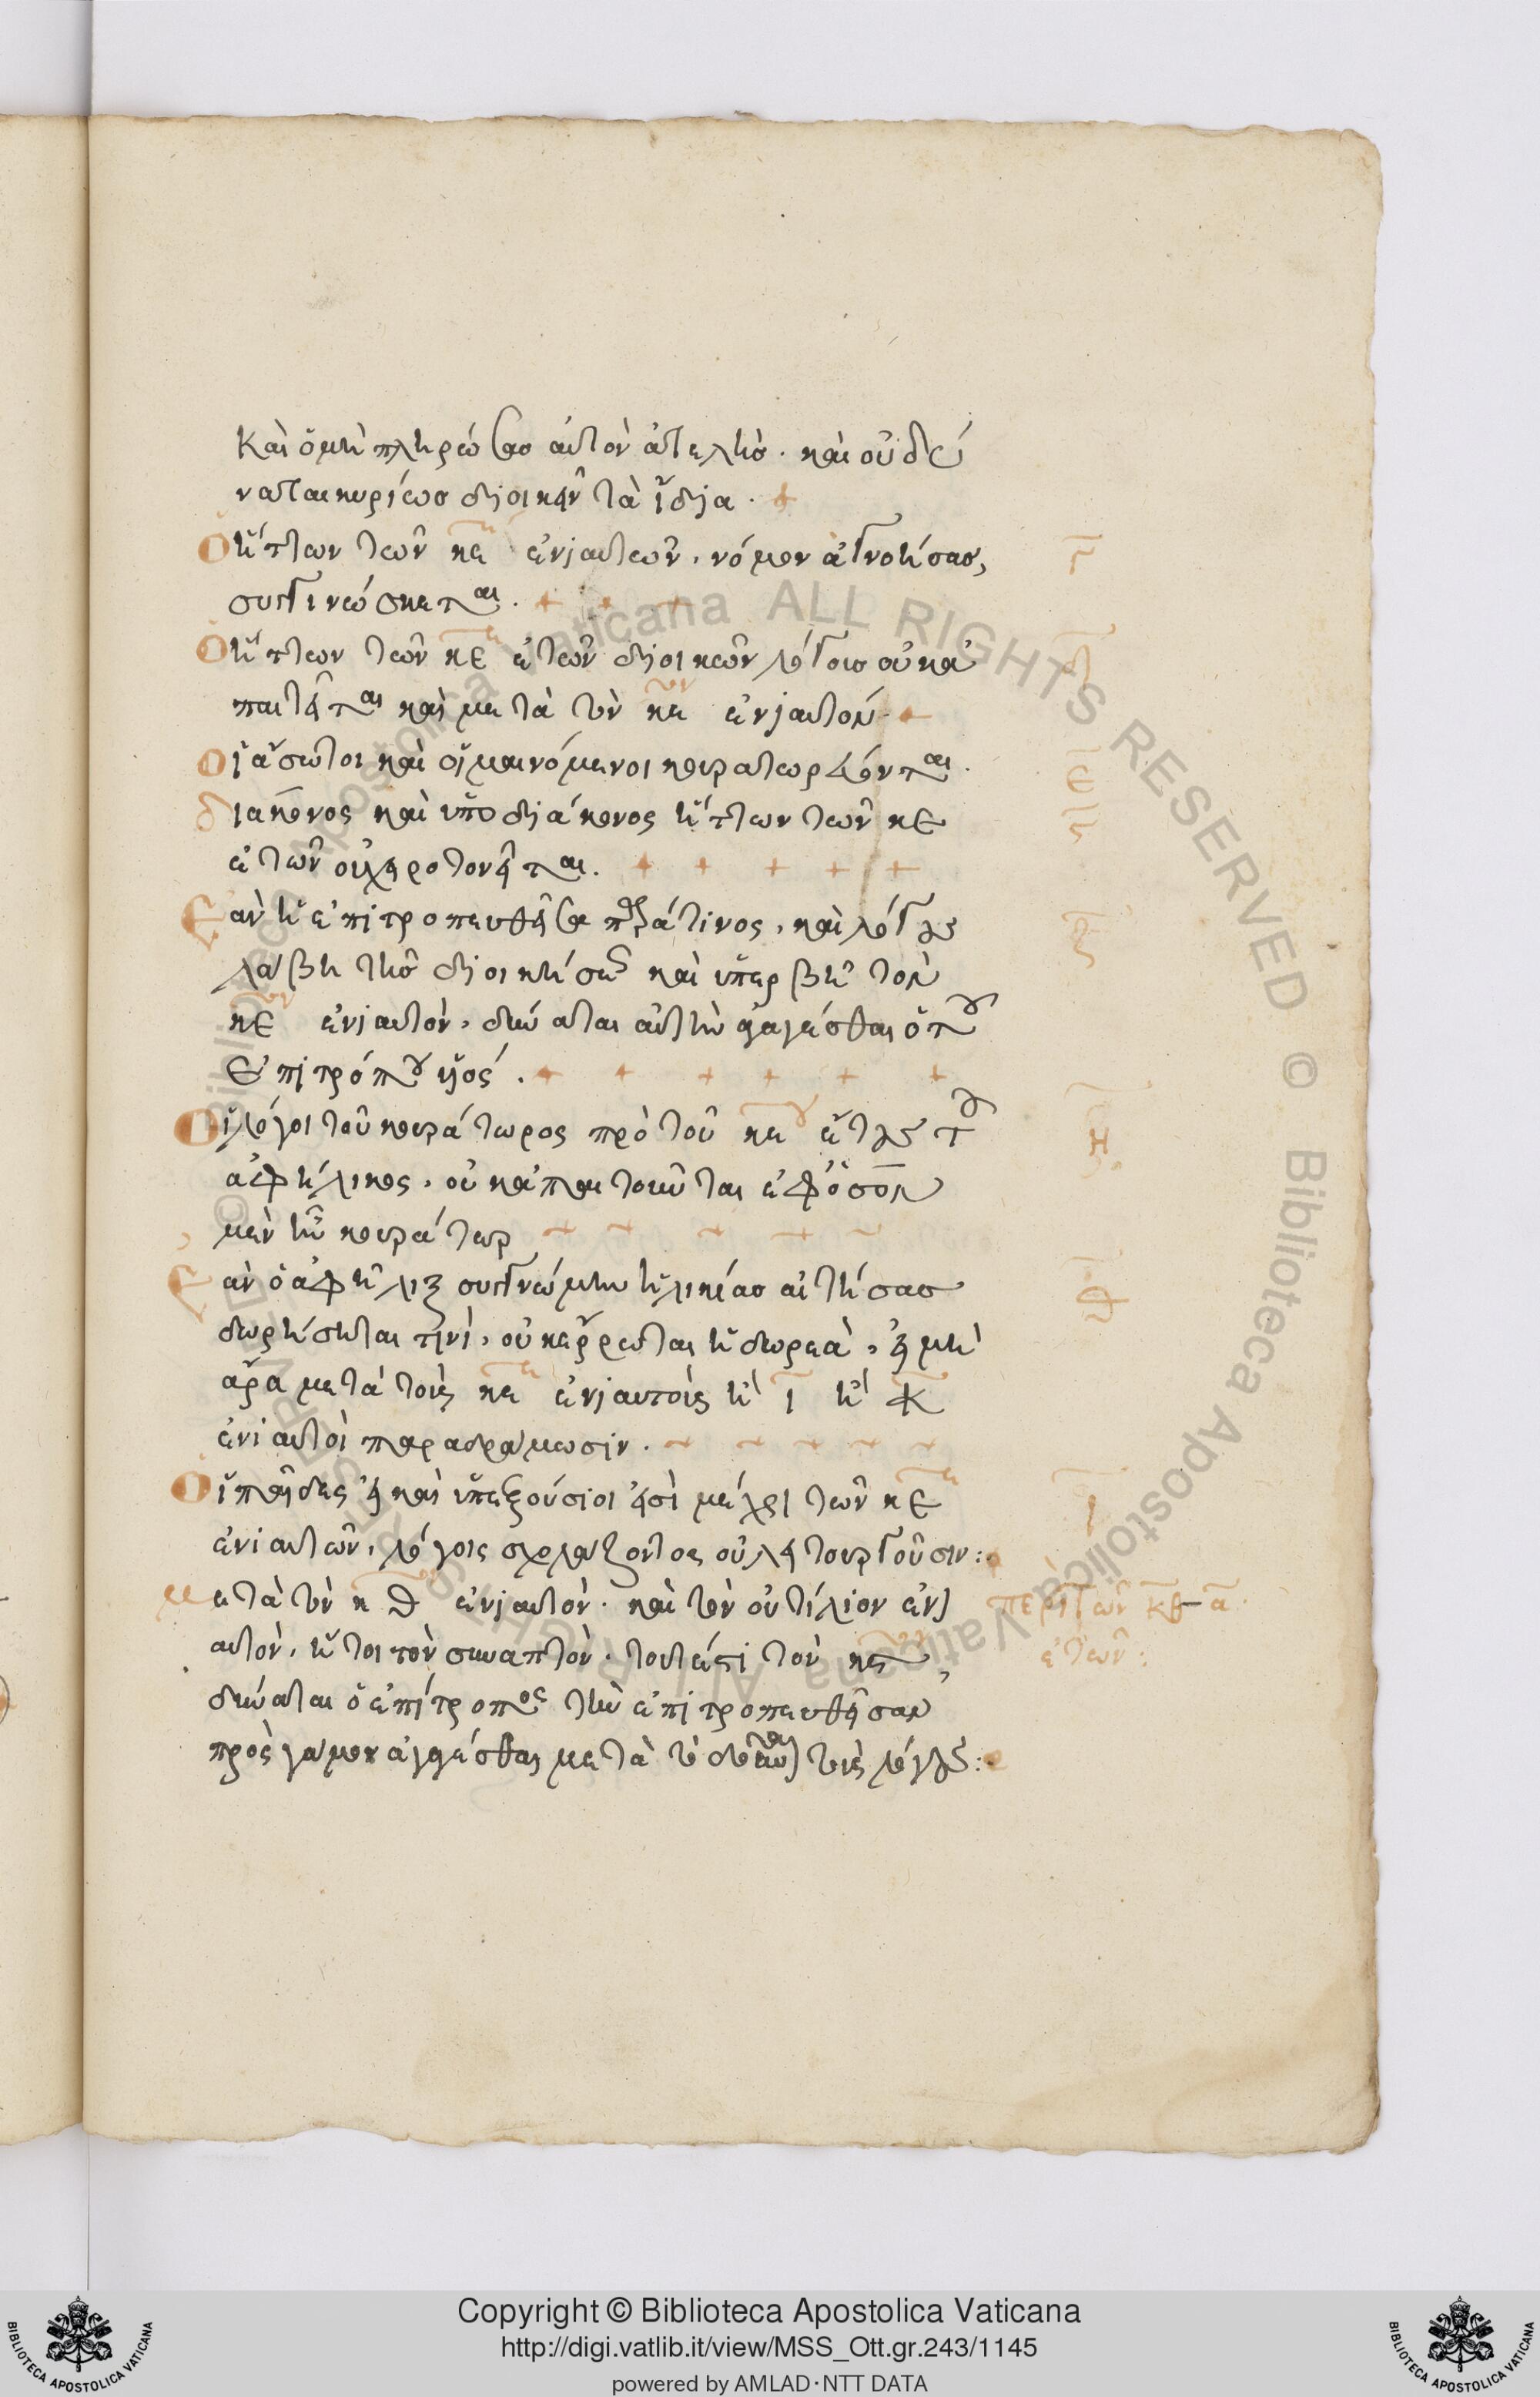 Καὶ ὁ μὴ πληρώσας αὐτὸν ἀτελὴς. καὶ οὐ δύ
ναται κυρίως διοικεῖν τὰ ἴδια. +
Ὁ ἥττων τῶν κε ἐνιαυτῶν, νόμον ἀγνοήσας,
συγγινώσκεται. + + +
γ
Ὁ ἥττων τῶν κε ἐτῶν διοικῶν λόγοις οὐκ ἀ
παιτεῖται καὶ μετὰ τὸν κε ἐνιαυτόν +
δ
Οἱ ἄσωτοι καὶ οἱ μαινόμενοι κουρατωρεύονται.
ε
διάκονος καὶ ὑποδιάκονος ἥττων τῶν κε
ἐτῶν οὐ χειροτονεῖται. + + + + +
ς
Ἐὰν ἡ ἐπιτροπευθεῖσα παρά τινος, καὶ λόγους
λάβῃ τῆς διοικήσεως καὶ ὑπερβῇ τὸν
κε ἐνιαυτόν, δύναται αὐτὴν ἀγαγέσθαι ὁ τοῦ
ἐπιτρόπου υἱός. + + + + + +
ζ
Οἱ λόγοι τοῦ κουράτωρος πρὸ τοῦ κε ἔτους τοῦ
ἀφήλικος, οὐκ ἀπαιτοῦνται ἐφ' ὅσον
μὲν ἦν κουράτωρ
η
Ἐὰν ὁ ἀφῆλιξ συγγνώμην ἡλικίας αἰτήσας
δωρήσηται τινὶ, οὐκ ἔρρωται ἡ δωρεὰ, εἰ μὴ
ἄρα μετὰ τοὺς κε ἐνιαυτοὺς ἢ ι ἢ κ
ἐνιαυτοὶ παραδράμωσιν.
θ
Οἱ παῖδες εἰ καὶ ὑπεξούσιοι εἰσὶ μέχρι τῶν κε
ἐνιαυτῶν, λόγοις σχολάζοντες οὐ λειτουργοῦσιν:
ι
μετὰ τὸν κθ ἐνιαυτὸν. καὶ τὸν οὐτίλιον ἐνι
αυτὸν, ἤτοι τὸν συναπτὸν. τουτέστι τὸν κς,
δύναται ὁ ἐπίτροπος τὴν ἐπιτροπευθεῖσαν
πρὸς γάμον ἀγαγέσθαι μετὰ τὸ δοῦναι τοὺς λόγους:
περὶ τῶν
ἐτῶν:
Copyright © Biblioteca Apostolica Vaticana
http://digi.vatlib.it/view/MSS_Ott.gr.243/1145
powered by AMLAD·NTT DATA
BIBLIOTECA APOSTOLICA VATICANA
BIBLIOTECA APOSTOLICA VATICANA
© Biblioteca Apostolica Vaticana ALL RIGHTS RESERVED © Biblioteca Apostolica Vaticana ALL RIGHTS RESERVED